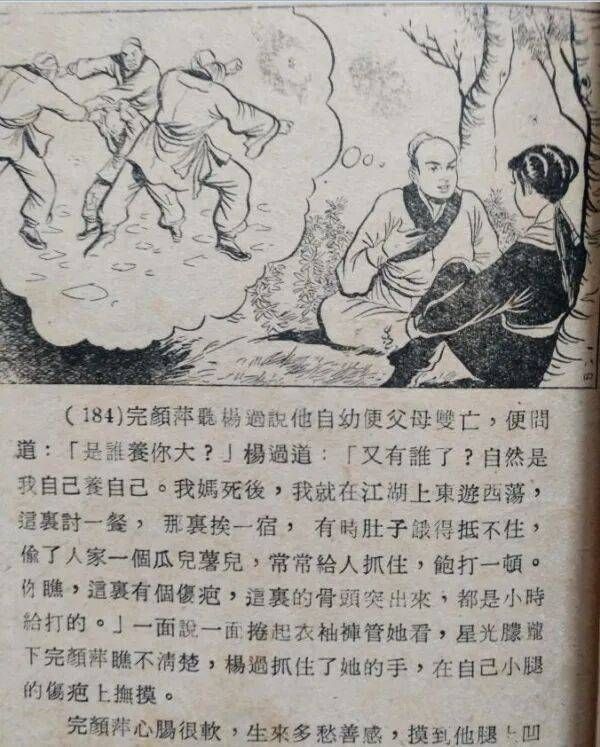 (184)完顏萍聽楊過說他自幼便父母雙亡，便問
道：「是誰養你大？」楊過道：「又有誰了？自然是
我自己養自己。我媽死後，我就在江湖上東遊西蕩，
這裏討一餐， 那裏挨一宿， 有時肚子餓得抵不住，
偷了人家一個瓜兒薯兒，常常給人抓住，飽打一頓。
你瞧，這裏有個傷疤，這裏的骨頭突出來，都是小時
給打的。」一面說一面捲起衣袖褲管她看，星光朦朧
下完顏萍瞧不清楚，楊過抓住了她的手，在自己小腿
的傷疤上撫摸。
完顏萍心腸很軟，生來多愁善感，摸到他腿上凹